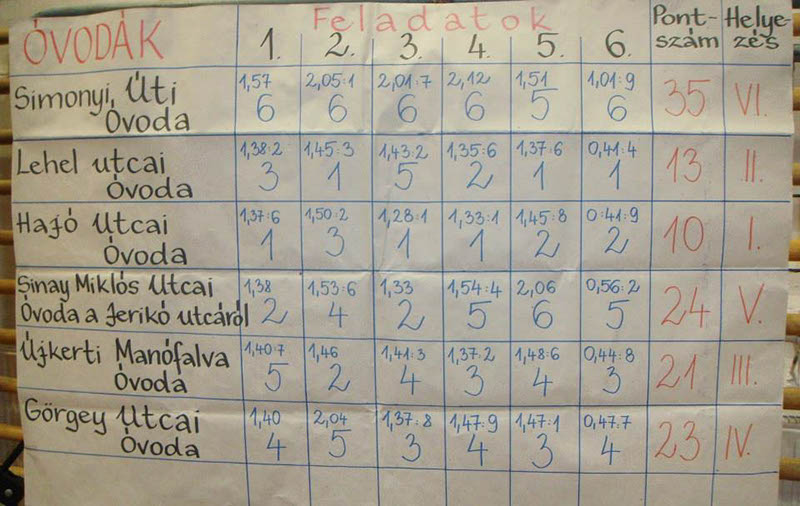 ÓVODÁK Feladatok Pont- Helye-
1. 2. 3. 4. 5. 6. szám zés
1,57 2,05:1 2,01:7 2,12 1,51 1,01:9
Simonyi, Úti 6 6 6 6 5 6 35 VI.
Óvoda
1,38:2 1,45:3 1,43:2 1,35:6 1,37:6 0,41:4
Lehel utcai 3 1 5 2 1 1 13 II.
Óvoda
1,37:6 1,50:2 1,28:1 1,33:1 1,45:8 0:41:9
Hajó Utcai 1 3 1 1 2 2 10 I.
Óvoda
1,38 1,53:6 1,33 1,54:4 2,06 0,56:2
Sinay Miklós Utcai
Óvoda a Jerikó utcáról 2 4 2 5 6 5 24 V.
1,40:7 1,46 1,41:3 1,37:2 1,48:6 0,44:8
Újkerti Manófalva 5 2 4 3 4 3 21 III.
Óvoda
1,40 2,04 1,37:8 1,47:9 1,47:1 0,47:7
Görgey Utcai 4 5 3 4 3 4 23 IV.
Óvoda